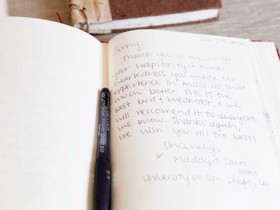 Sonny,
Thank you so much for
your hospitality & kind
heartedness you made our
experience in
much better. This is the
best bed & breakfast, & we
will reccomend it to everyone
we know. Thanks again,
we wish you all the best!
Sincerely,
Maddy &
University of San Diego, CA